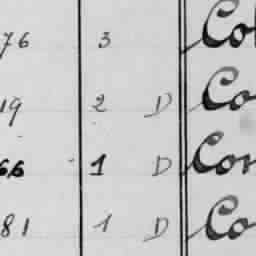 76 3 Col
19 2 D Co
66 1 D Con
81 1 D Co